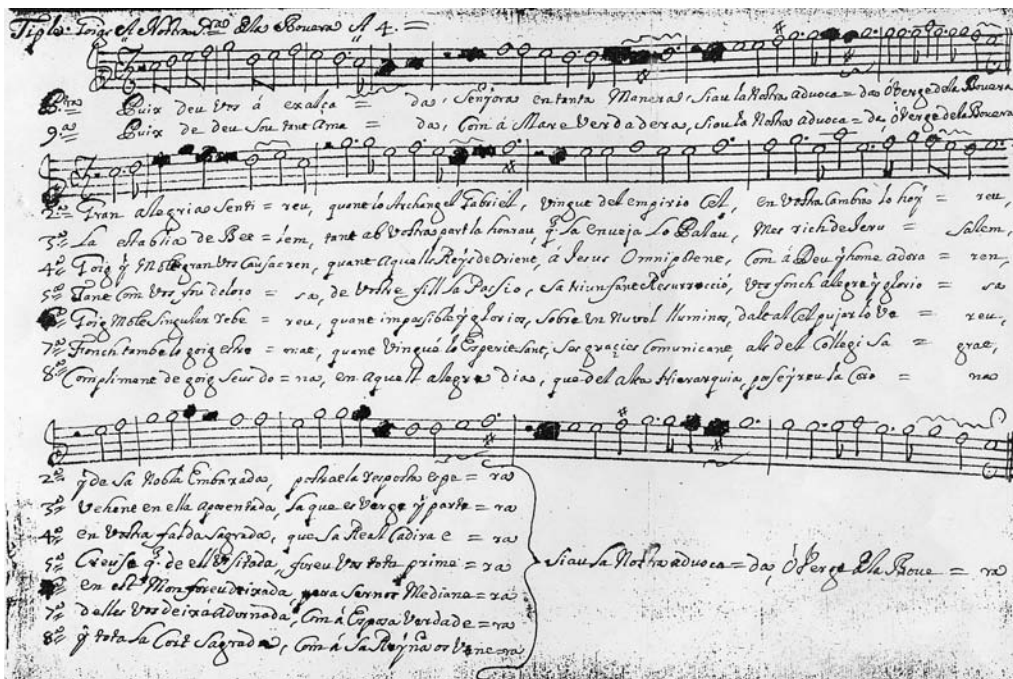 Tiple. Goigs A Nostra Sra de la Bovera A 4.
Puix deu Vos á exalça = da, Senyora en tanta Manera, Siau la Nostra advoca = da ó Verge de la Bovera
9ª Puix de deu Sou tant Ama = da, Com á Mare Verdadera, Siau la Nostra advoca = da ó Verge de la Bovera
2ª Gran alegria Senti = reu, quant lo Archangel Gabriell, vingué del empirio Cel, en Vostra Cambra lo hoy = reu,
3ª La establia de Bet = lem, tant ab Vostra part la honrau, q̃ la enveja lo Palau, Mes rich de Jeru = salem,
4ª Goig ÿ Molt gran Vos Causaren, quant Aquells Reys de Orient, á Jesus Omnipotent, Com á Deu ÿ home adora = ren,
5ª Tant Com Vos fou doloro = sa, de Vostre fill la Passio, Sa triunfant Resurrecció, Vos fonch alegre ÿ glorio = sa
Goig Molt Singular rebe = reu, quant impassible ÿ gloriós, Sobre un Nuvol lluminos, dalt al Cel pujar lo Ve = reu,
7ª Fonch tambe lo goig estre = mat, quant Vingué lo Esperit Sant, Ses gracies Comunicant, als del Collegi Sa = grat,
8ª Compliment de goig Seus do = na, en Aquell alegre dia, que del alta Hierarquia, posseÿreu la Coro = na
2ª ÿ de Sa Nobla Embaxada, la resposta espe = ra
3ª Vehent en ella aposentada, la que es Verge ÿ parte = ra
4ª en Vostra falda Sagrada, que Sa Real Cadira e = ra
5ª Creuse q̃ de ell Visitada, foreu Vos tota prime = ra
en est Mon foreu deixada, pera Sernos Mediane = ra
7ª dells Vos deixa Adornada, Com á Esposa Verdade = ra
8ª ÿ tota la Cort Sagrada, Com á Sa Reÿna os Vene = ra
Siau la Nostra advoca = da, Ó Verge de la Bove = ra